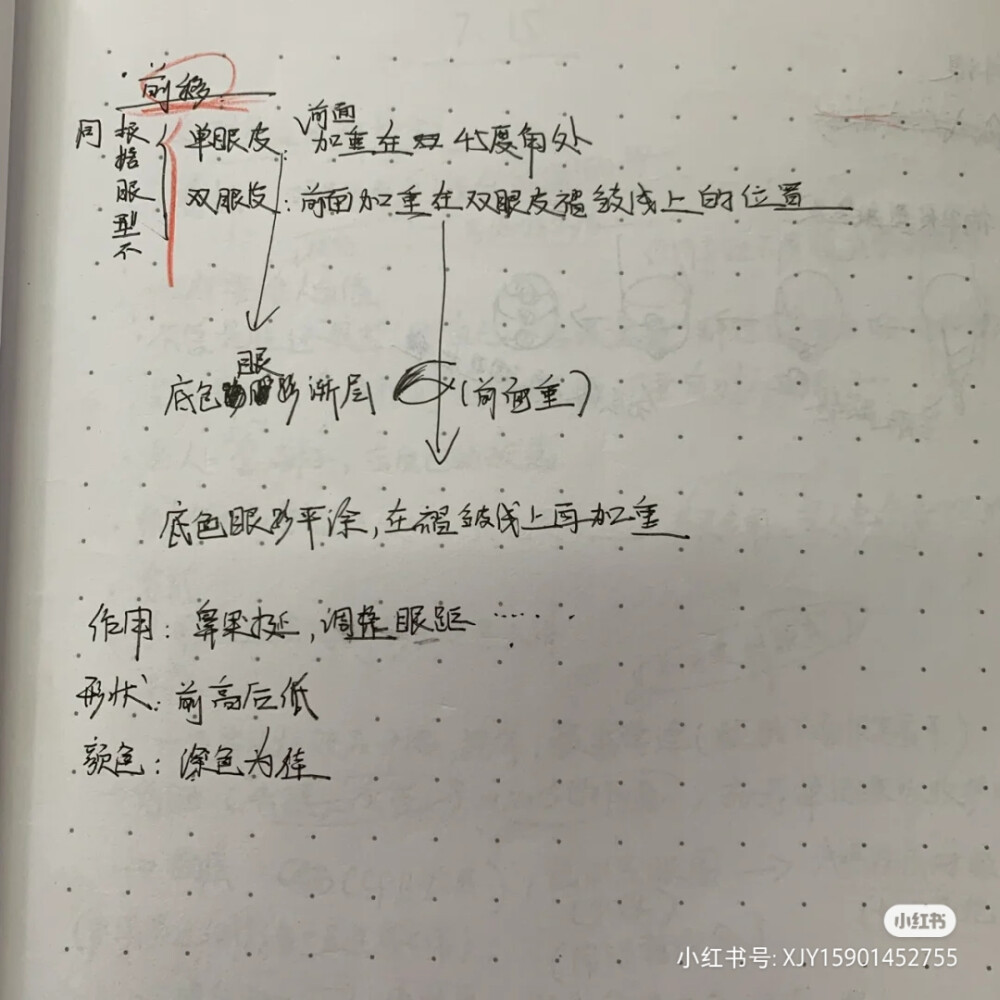 前移
根据眼型不同
单眼皮:前面加重在双45度角处
双眼皮:前面加重在双眼皮褶皱线上的位置
底色眼影渐层(前面重)
底色眼影平涂,在褶皱线上再加重
作用:鼻梁挺,调整眼距……
形状:前高后低
颜色:深色为佳
小红书
小红书号: XJY15901452755